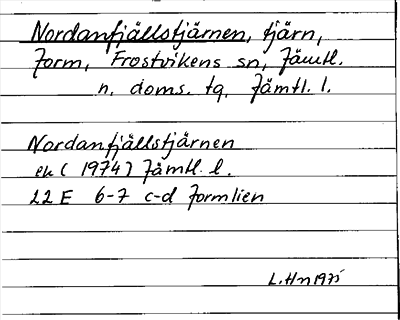 Nordanfjällstjärnen, tjärn,
Jorm, Frostvikens sn, Jämtl.
n. doms. tg, Jämtl. l.
Nordanfjällstjärnen
ek ( 1974) Jämtl. l.
22 E 6-7 c-d Jormlien
L. Hn 1975